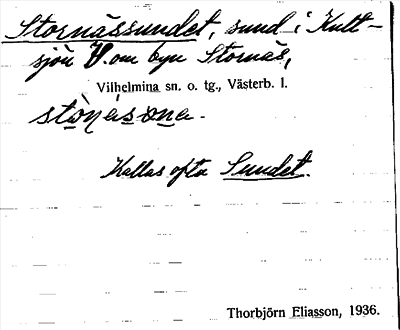 Stornässundet, sund i Kult-
sjön V.om byn Stornäs,
Vilhelmina sn. o. tg., Västerb. l.
Kallas ofta Sundet.
Thorbjörn Eliasson, 1936.